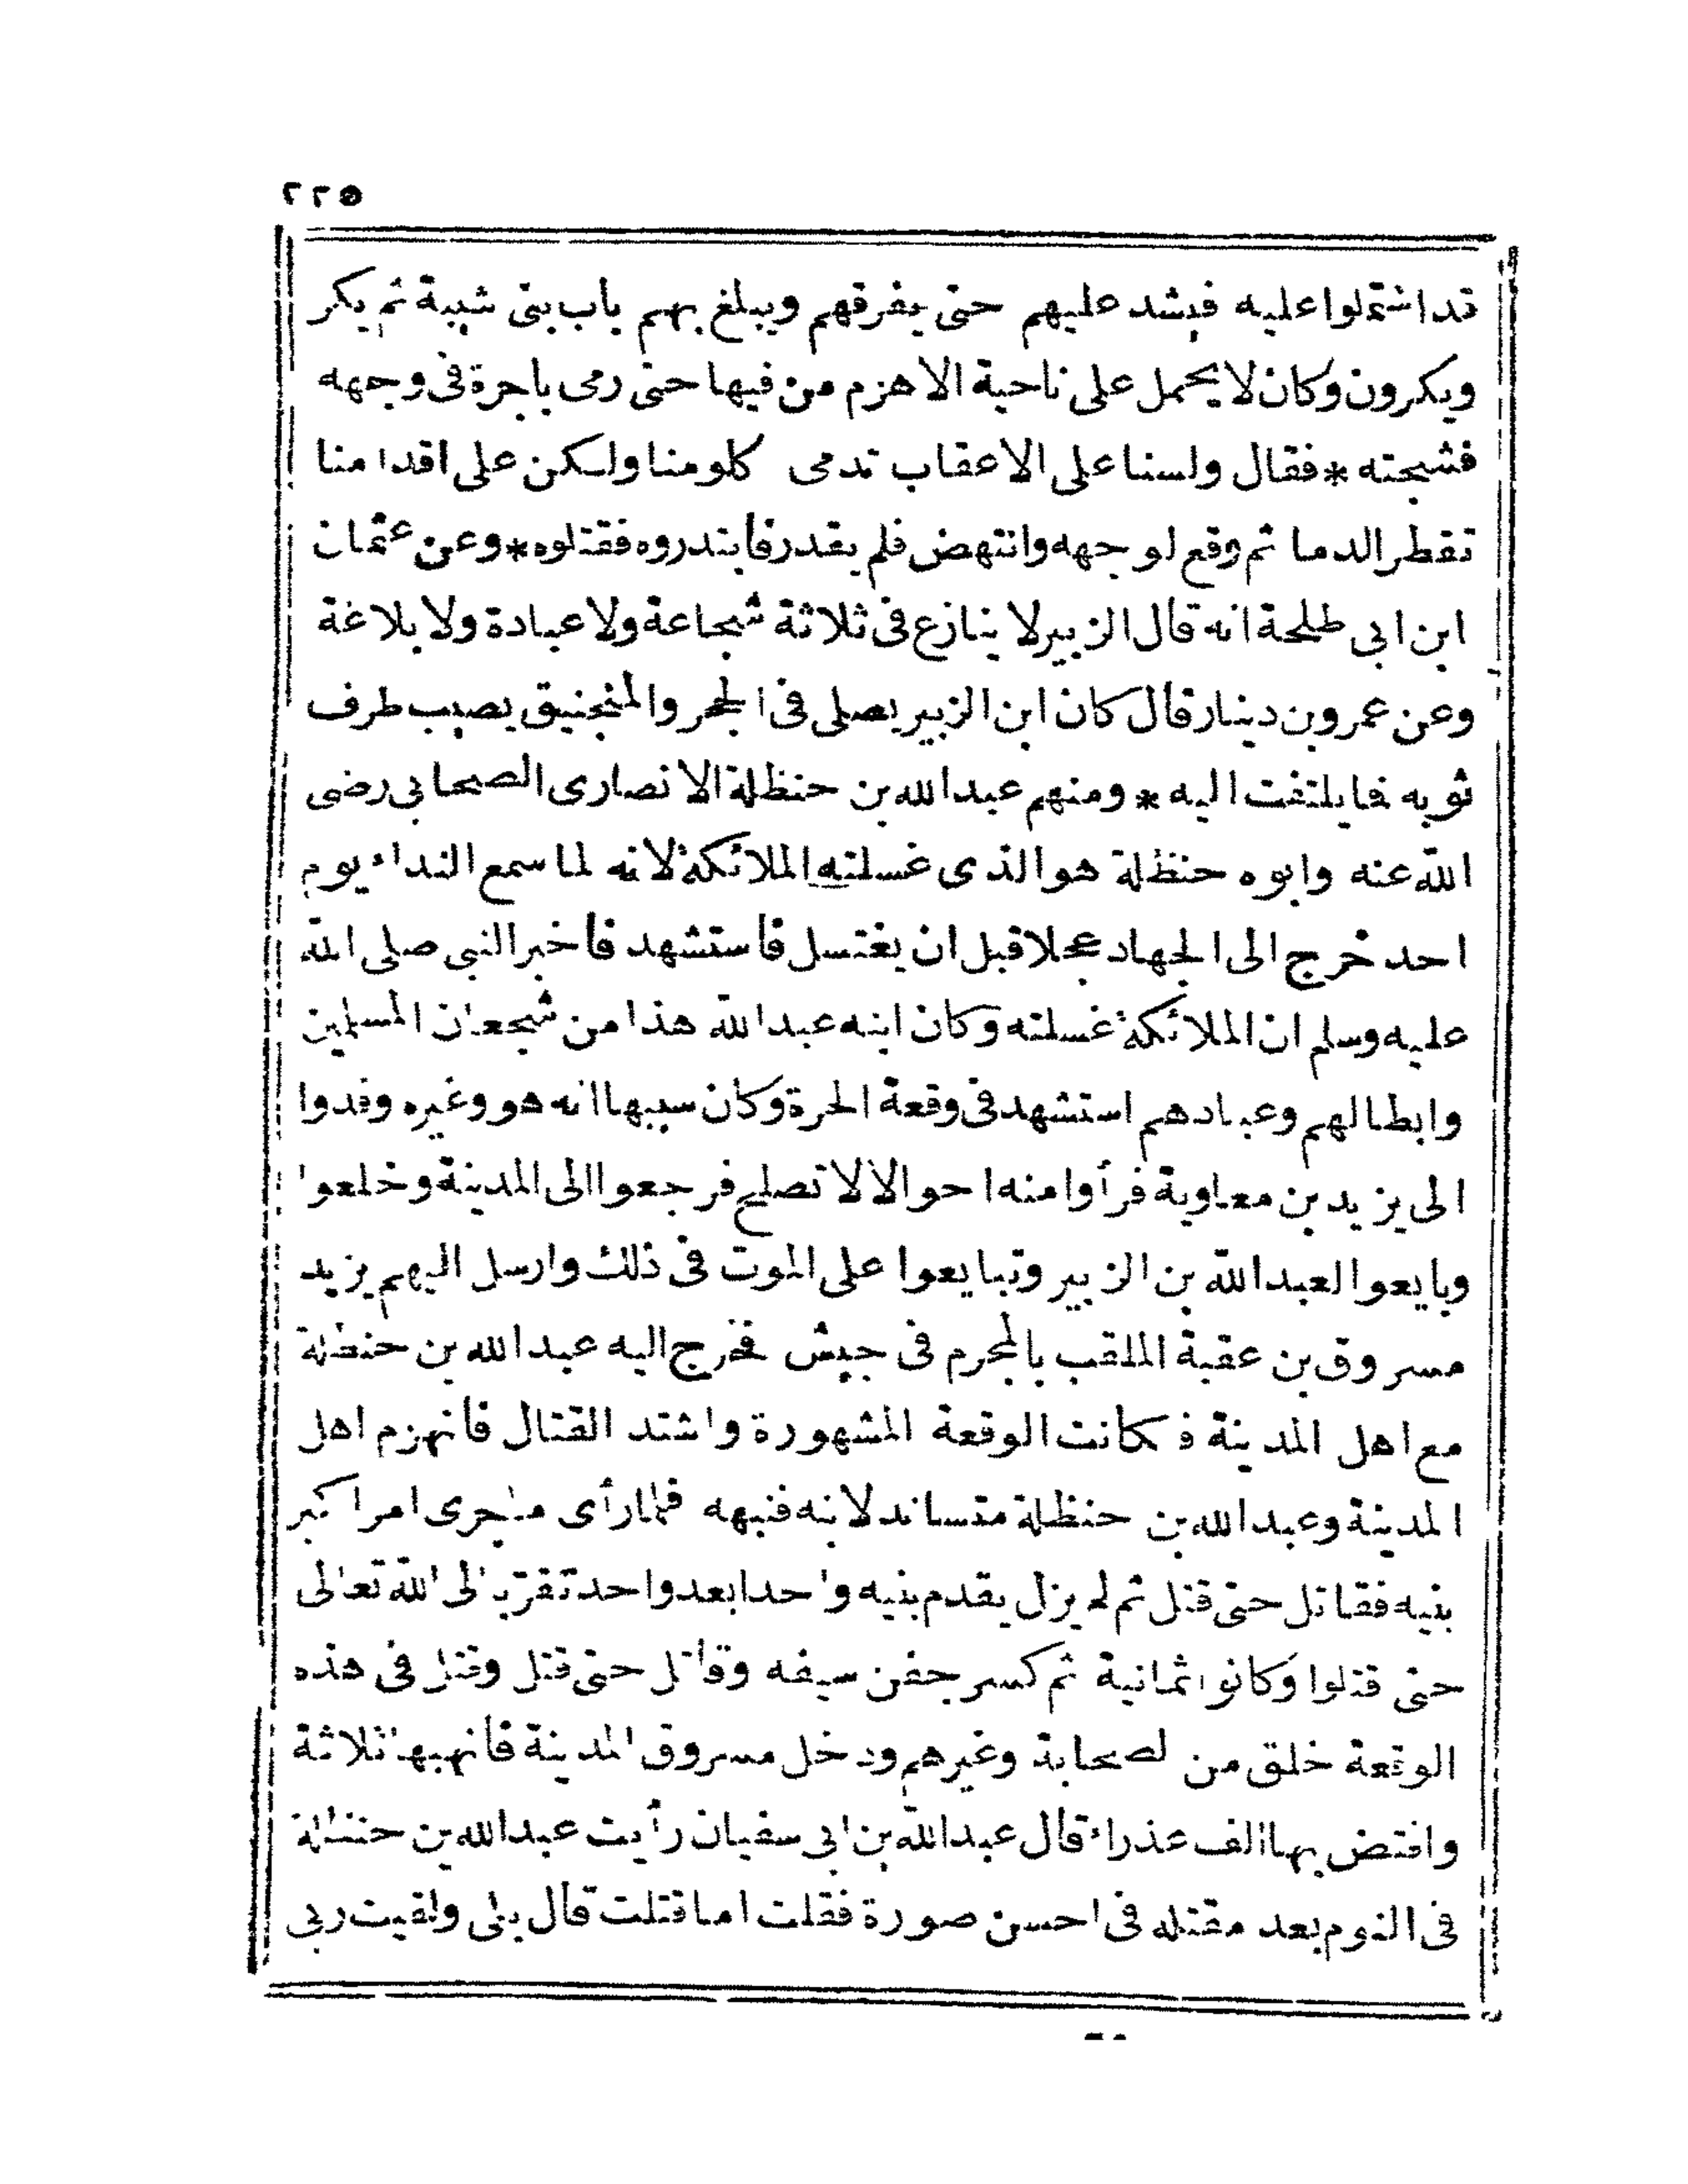 ٢٢٥
قد اشتملوا عليه فيشد عليهم حتى يفرقهم ويبلغ بهم باب بنى شيبة ثم يكر
ويكرون وكان لا يحمل على ناحية الا هزم من فيها حتى رمى باجرة فى وجهه
فشجته * فقال ولسنا على الاعقاب تدمى كلومنا ولكن على اقدامنا
تقطر الدما ثم وقع لوجهه وانتهض فلم يقدر فابتدروه فقتلوه * وعن عثمان
ابن ابى طلحة انه قال الزبير لا ينازع فى ثلاثة شجاعة ولا عبادة ولا بلاغة
وعن عمرو بن دينار قال كان ابن الزبير يصلى فى الحجر والمنجنيق يصيب طرف
ثوبه فما يلتفت اليه * ومنهم عبدالله بن حنظلة الانصارى الصحابى رضى
الله عنه وابوه حنظلة هو الذى غسلته الملائكة لانه لما سمع النداء يوم
احد خرج الى الجهاد عجلا قبل ان يغتسل فاستشهد فاخبر النبى صلى الله
عليه وسلم ان الملائكة غسلته وكان ابنه عبدالله هذا من شجعان المسلمين
وابطالهم وعبادهم استشهد فى وقعة الحرة وكان سببها انه هو وغيره وفدوا
الى يزيد بن معاوية فرأوا منه احوالا لا تصلح فرجعوا الى المدينة وخلعوا
وبايعوا لعبدالله بن الزبير وتبايعوا على الموت فى ذلك وارسل اليهم يزيد
مسروق بن عقبة الملقب بالمجرم فى جيش فخرج اليه عبدالله بن حنظلة
مع اهل المدينة فكانت الوقعة المشهورة واشتد القتال فانهزم اهل
المدينة وعبدالله بن حنظلة متساند لابنه فنبهه فلما رأى ما جرى امر اكبر
بنيه فقاتل حتى قتل ثم لم يزل يقدم بنيه واحدا بعد واحد تقربا الى الله تعالى
حتى قتلوا وكانوا ثمانية ثم كسر جفن سيفه وقاتل حتى قتل وقتل فى هذه
الوقعة خلق من لصحابة وغيرهم ودخل مسروق المدينة فانهبها ثلاثة
وافتض بها الف عذراء قال عبدالله بن ابى سفيان رأيت عبدالله بن حنظلة
فى النوم بعد مقتله فى احسن صورة فقلت اما قتلت قال بلى ولقيت ربى